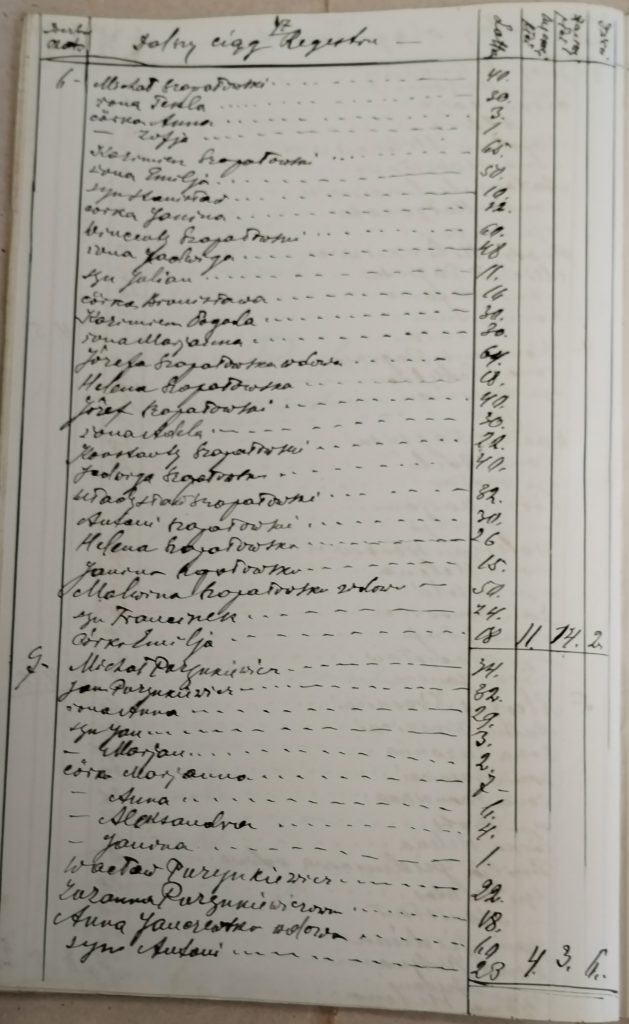 47
Dalszy ciąg Regestru —
Latta
6 - Michał Szapałowski 40.
żona Tekla 30.
córka Anna 3.
— Zofja 1
Kazimierz Szapałowski 65.
żona Emilja 50.
syn Stanisław 10.
córka Janina 12.
Wincenty Szapałowski 60.
żona Jadwiga 48
syn Julian 11.
córka Bronisława
Kazimierz Pogoda 30.
żona Marjanna 30.
Józefa Szapałowska wdowa 64.
Helena Szapałowska 18.
Józef Szapałowski 40.
żona Adela 30.
Konstanty Szapałowski 22.
Jadwiga Szapałowska 40.
Władysław Szapałowski 32.
Antoni Szapałowski 30.
Helena Szapałowska 26
Janina Szapałowska 15.
Malwina Szapałowska wdowa 50.
syn Franciszek 24.
córka Emilja 18 11. 14. 2.
7- Michał Purzynkiewicz 34.
Jan Purzynkiewicz 32.
żona Anna 29.
syn Jan 3.
— Marjan 2.
córka Marjanna 7-
— Anna 6.
— Aleksandra 4.
— Janina 1.
Wacław Purzynkiewicz 22.
Zuzanna Purzynkiewiczowa 18.
Anna wdowa 60
syn Antoni 23 4. 3. 6.